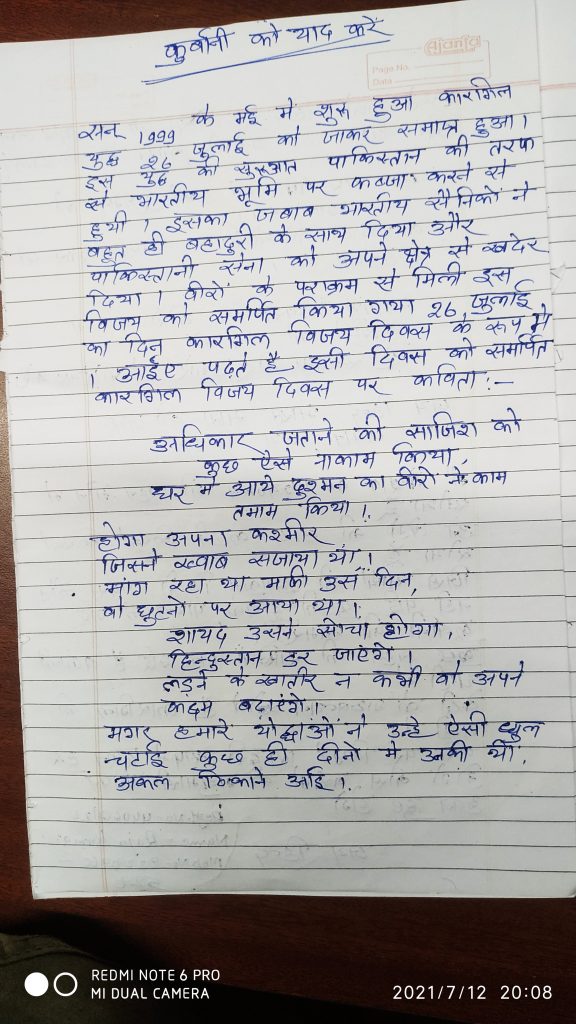 कुर्बानी को याद करें
Ajanta
Page No.
Date
सन् 1999 के मई में शुरू हुआ कारगिल
युद्ध 26 जुलाई को जाकर समाप्त हुआ।
इस युद्ध की शुरूआत पाकिस्तान की तरफ
से भारतीय भूमि पर कब्जा करने से
हुयी। इसका जबाब भारतीय सैनिकों ने
बहुत ही बहादुरी के साथ दिया और
पाकिस्तानी सेना को अपने क्षेत्र से खदेर
दिया। वीरों के पराक्रम से मिली इस
विजय को समर्पित किया गया 26 जुलाई
का दिन कारगिल विजय दिवस के रूप में
। आईए पढ़ते है इसी दिवस को समर्पित
कारगिल विजय दिवस पर कविता :-
अधिकार जताने की साजिश को
कुछ ऐसे नाकाम किया,
घर में आये दुश्मन का वीरों ने काम
तमाम किया।
होगा अपना कश्मीर
जिसने ख्वाब सजाया था।
मांग रहा था माफी उस दिन,
वो घुटनो पर आया था।
शायद उसने सोचा होगा,
हिन्दुस्तान डर जाएंगे।
लड़ने के खातीर न कभी वो अपने
कदम बढ़ाएंगे।
मगर हमारे योद्धाओं ने उन्हे ऐसी धुल
चटाई कुछ ही दीनो में उनकी थी,
अकल ठिकाने आई।
REDMI NOTE 6 PRO
MI DUAL CAMERA
2021/7/12 20:08